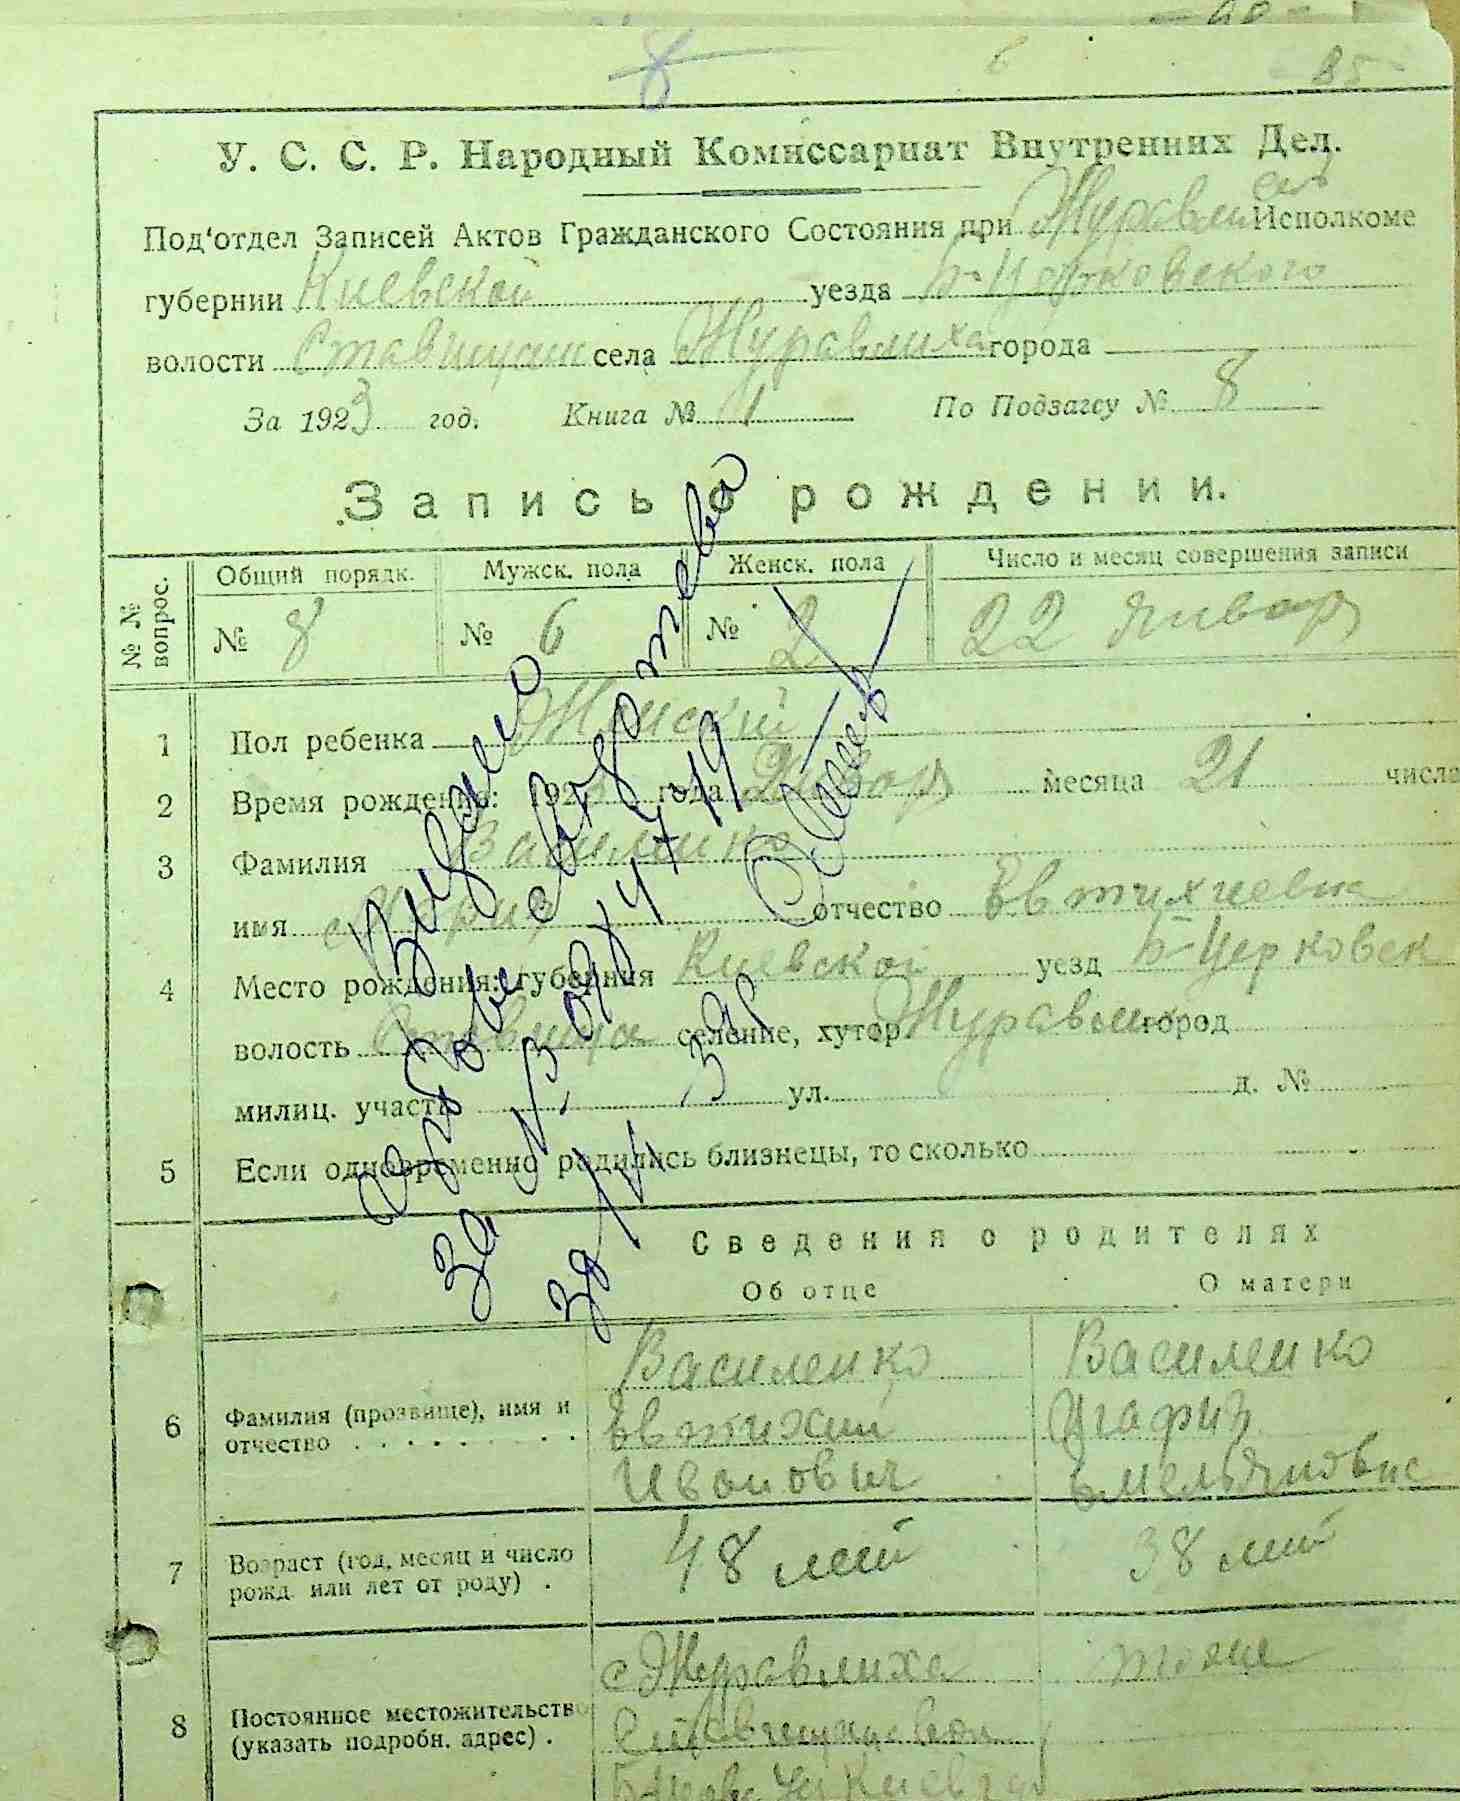 8
85
У. С. С. Р. Народный Комиссариат Внутренних Дел.
Под'отдел Записей Актов Гражданского Состояния при Журавлис сель Исполкоме
губернии Киевской уезда Б-Церковского
волости Ставищан села Журавлиха города
За 1923 год. Книга № 1 По Подзагсу № 8
Запись о рождении.
№ № вопрос.
Общий порядк. Мужск. пола Женск. пола Число и месяц совершения записи
№ 8 № 6 № 2 22 Январ
1 Пол ребенка Женский
2 Время рождения: 192 года Январ месяца 21 числа
3 Фамилия Василенко
имя Мария отчество Евтихиевна
4 Место рождения: губерния Киевской уезд Б-Церковск
волость Ставища селение, хутор Журавлиха город
милиц. участ ул. д. №
5 Если одновременно родились близнецы, то сколько
Выдано
свидетельство
за №
Сведения о родителях
Об отце О матери
6 Фамилия (прозвище), имя и отчество
Василенко Евтихий Иванович
Василенко Агафия Емельяновна
7 Возраст (год, месяц и число рожд. или лет от роду) .
48 лет 38 лет
8 Постоянное местожительство (указать подробн. адрес) .
с Журавлиха тоже